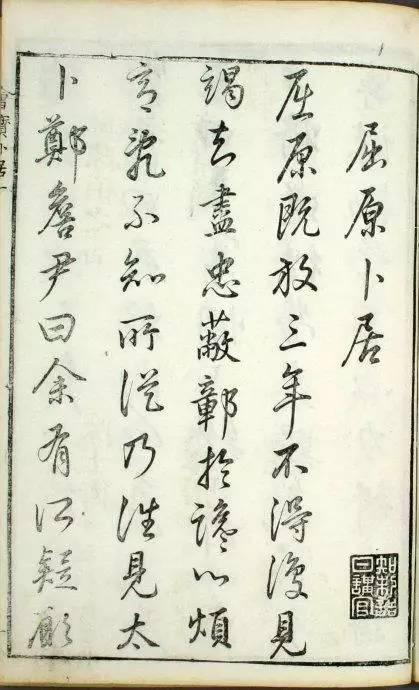 屈原卜居
屈原既放三年不得復見
竭知盡忠蔽鄣於讒心煩
意亂不知所從乃往見太
卜鄭詹尹曰余有所疑願
知制誥
日講官